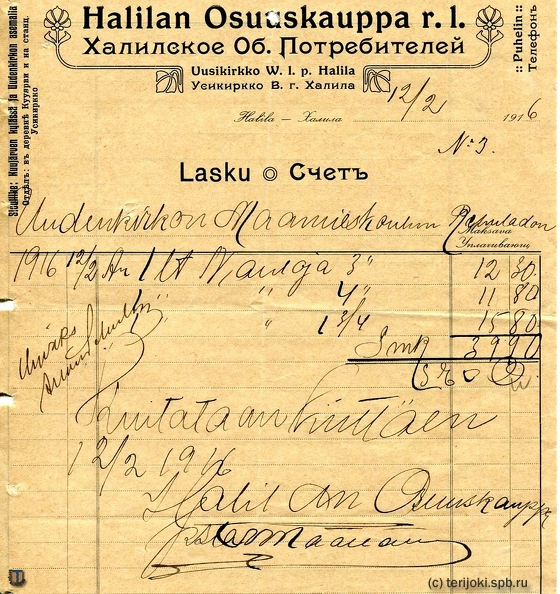 Halilan Osuuskauppa r. l.
Халилское Об. Потребителей
Uusikirkko W. l. p. Halila
Усикиркко В. г. Халила
:: Puhelin ::
Телефонъ
Sivuliike: Kuujärven kylässä ja Uudenkirkon asemalla
Отдѣл: въ деревнѣ Кууярви и на станц. Усикиркко
Halila — Халила 12/2 1916
No 3.
Lasku ⊙ Счетъ
Uudenkirkon Maamieskoulun
Maksava
Уплачивающ
1916 12/2 An 1 lt Nauloja 3" 12 30
" " 4" 11 80
" 1 3/4 15 80
Smk 39 90
Kuitataan kiittäen
12/2 1916
Halilan Osuuskauppa
(c) terijoki.spb.ru